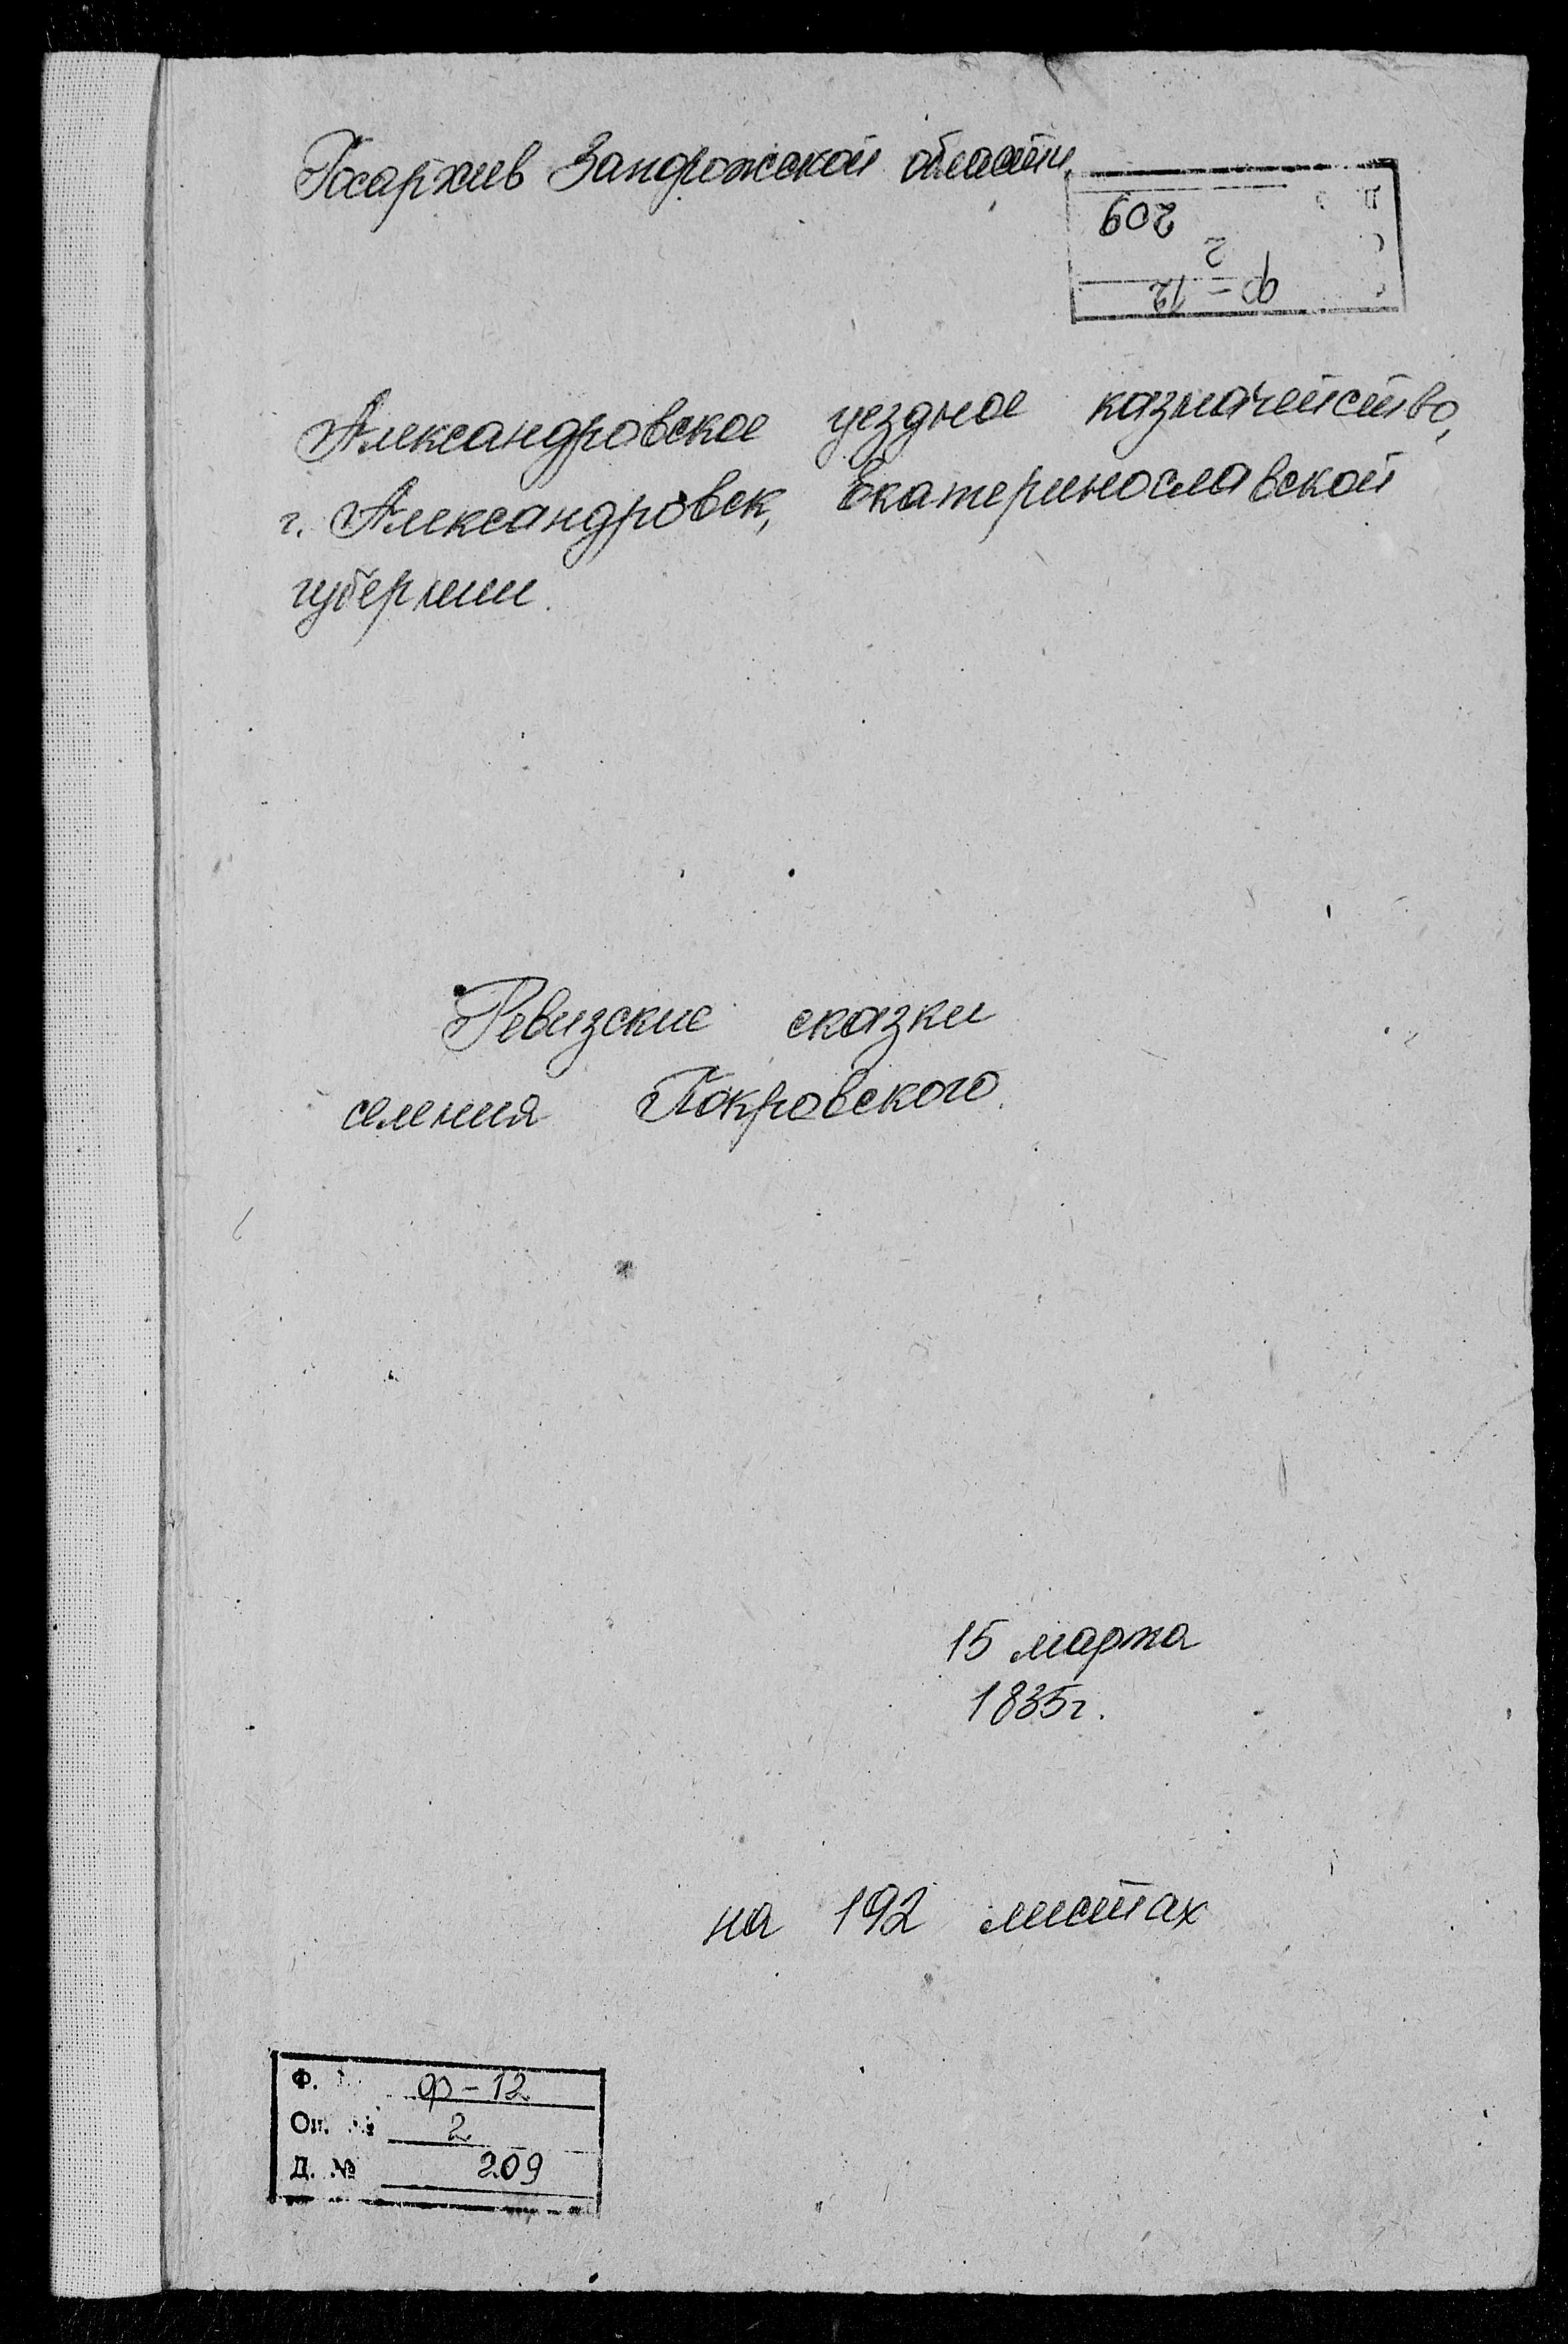 Госархив Запорожской области
209
2
ф-12
Александровское уездное казначейство,
г. Александровск, Екатеринославской
губернии.
Ревизские сказки
селения Покровского.
15 марта
1835г.
на 192 листах
Ф. ф-12
Оп. № 2
Д. № 209